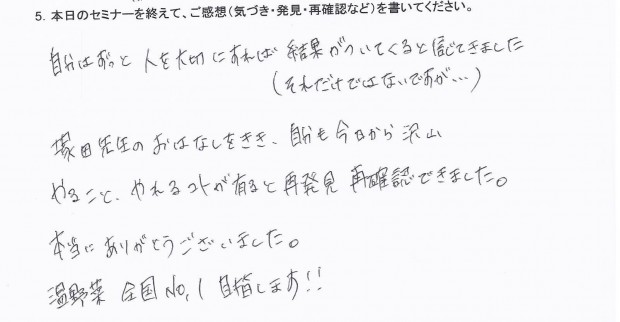 5. 本日のセミナーを終えて、ご感想（気づき・発見・再確認など）を書いてください。
自分はずっと 人を大切にすれば 結果がついてくると信じてきました
（それだけではないですが…）
塚田先生のおはなしをきき、自分も今日から沢山
やること、やれるコトが有ると再発見 再確認できました。
本当にありがとうございました。
温野菜 全国No,1 目指します!!